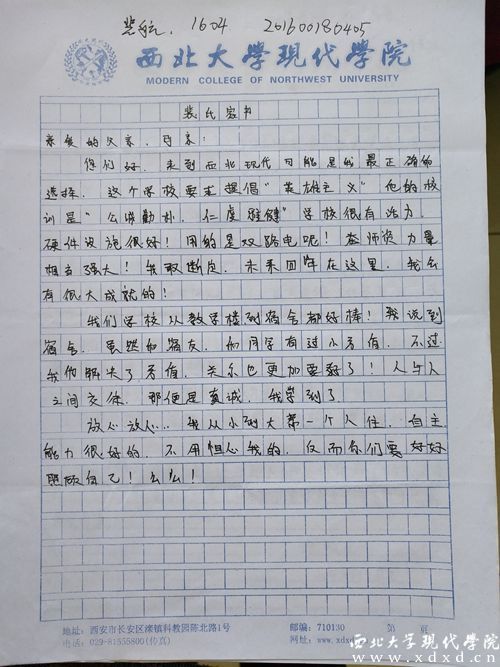 裴航, 1604 201600180405
西北大學現代學院
MODERN COLLEGE OF NORTHWEST UNIVERSITY
裴氏家书
亲爱的父亲、母亲:
你们好,来到西北现代可能是我最正确的
选择。这个学校要求提倡“英雄主义”他的校
训是“公诚勤朴、仁虔雅健”学校很有活力。
硬件设施很好!用的是双路电呢!查师资力量
相当强大!我敢断定,未来四年在这里,我会
有很大成就的!
我们学校从教学楼到宿舍都好棒!我说到
宿舍,虽然和舍友、和同学有过小矛盾,不过
我们解决了矛盾,关系也更加要好了!人与人
之间交往,那便是真诚,我学到了。
放心放心。我从小到大第一个人住,自主
能力很好的,不用担心我的,反而你们要好好
照顾自己!么么!
地址:西安市长安区滦镇科教园陈北路1号
邮编:710130
第 页
电话:029-81555800(传真)
网址:www.xdxd
西北大学现代学院
www.xdxd.cn